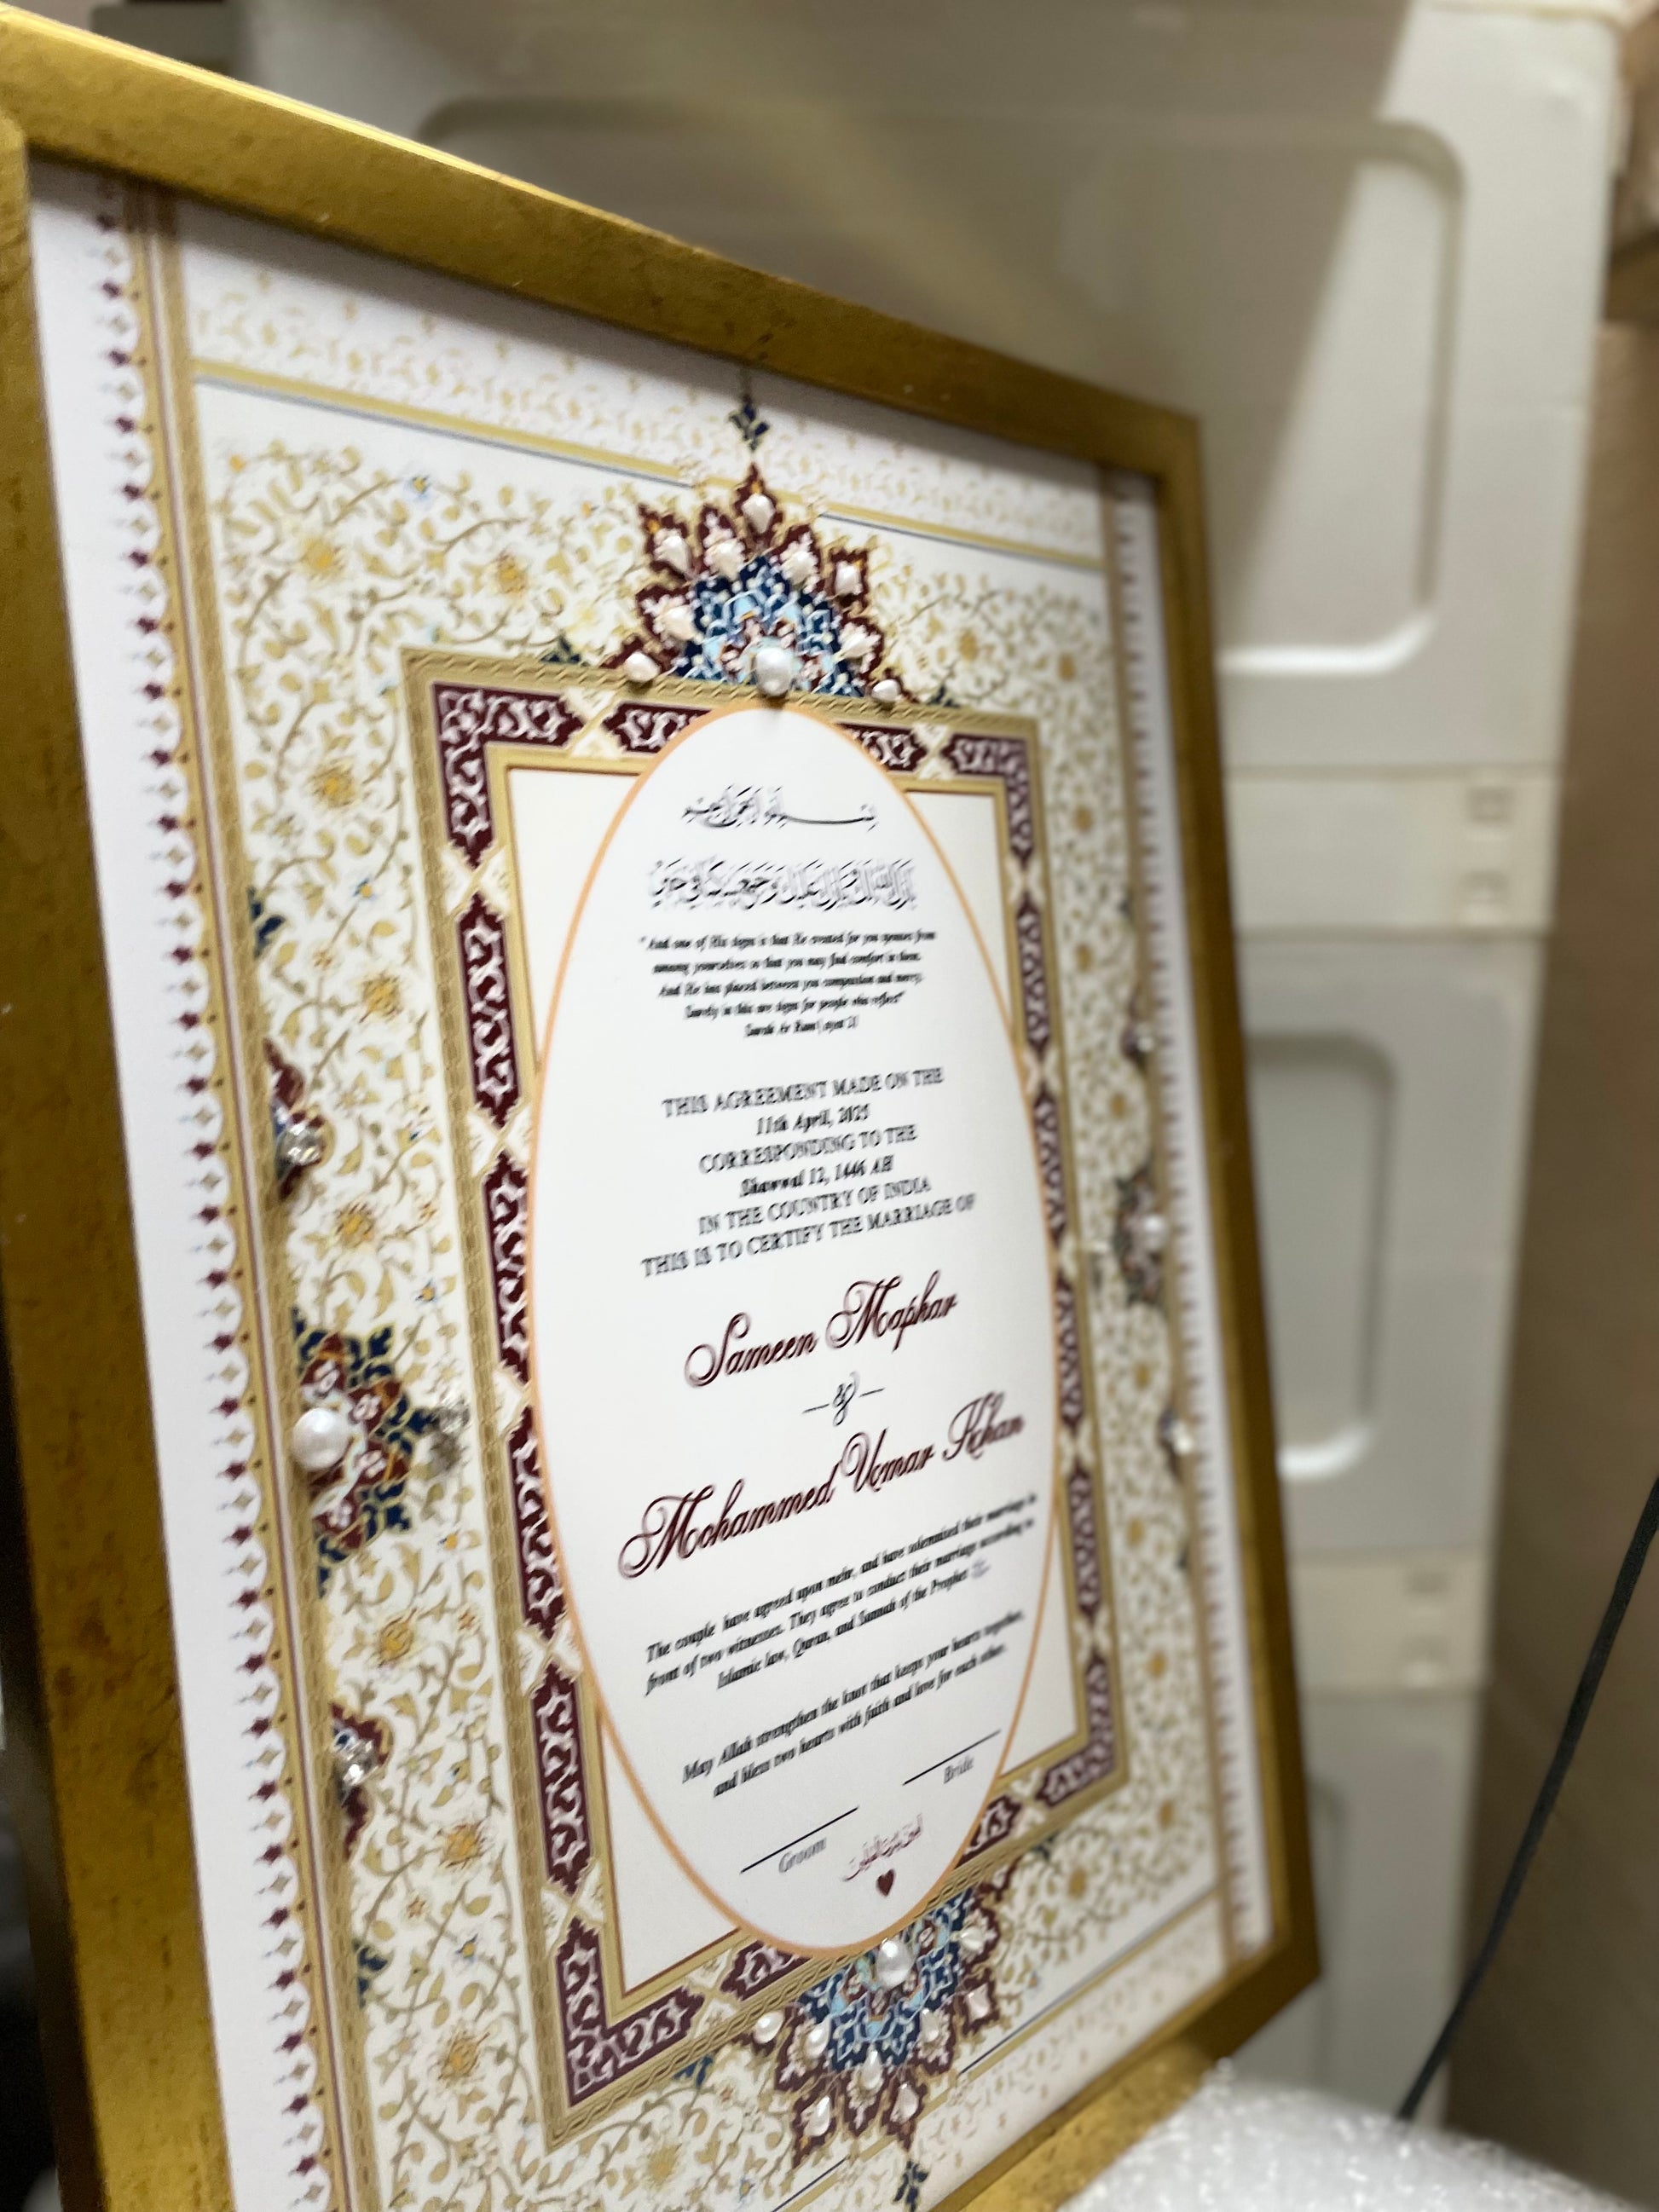 "And one of His signs is that He created for you spouses from
among yourselves so that you may find comfort in them.
And He has placed between you compassion and mercy.
Surely in this are signs for people who reflect"
Surah Ar Rum| ayat 21
THIS AGREEMENT MADE ON THE
11th April, 2025
CORRESPONDING TO THE
Shawwal 12, 1446 AH
IN THE COUNTRY OF INDIA
THIS IS TO CERTIFY THE MARRIAGE OF
Sameen Maphar
&
Mohammed Uomar Khan
The couple have agreed upon mehr, and have solemnized their marriage in
front of two witnesses. They agree to conduct their marriage according to
Islamic law, Quran, and Sunnah of the Prophet
May Allah strengthen the knot that keeps your hearts together,
and bless two hearts with faith and love for each other.
Bride
Groom